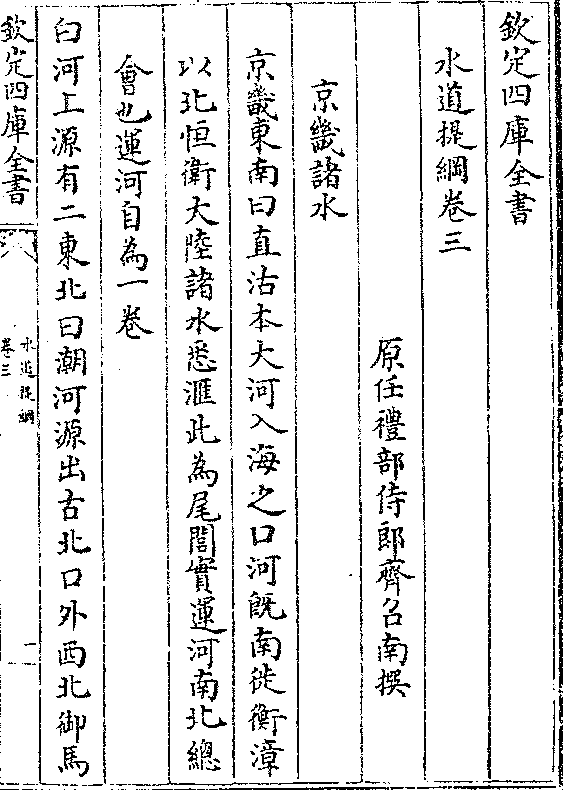 欽定四庫全書
水道提綱卷三
原任禮部侍郎齊召南撰
京畿諸水
京畿東南曰直沽本大河入海之口河既南徙衡漳
以北恒衛大陸諸水悉滙此為尾閭實運河南北總
會也運河自為一卷
白河上源有二東北曰潮河源出古北口外西北御馬
欽定四庫全書
水道提綱
卷三
一